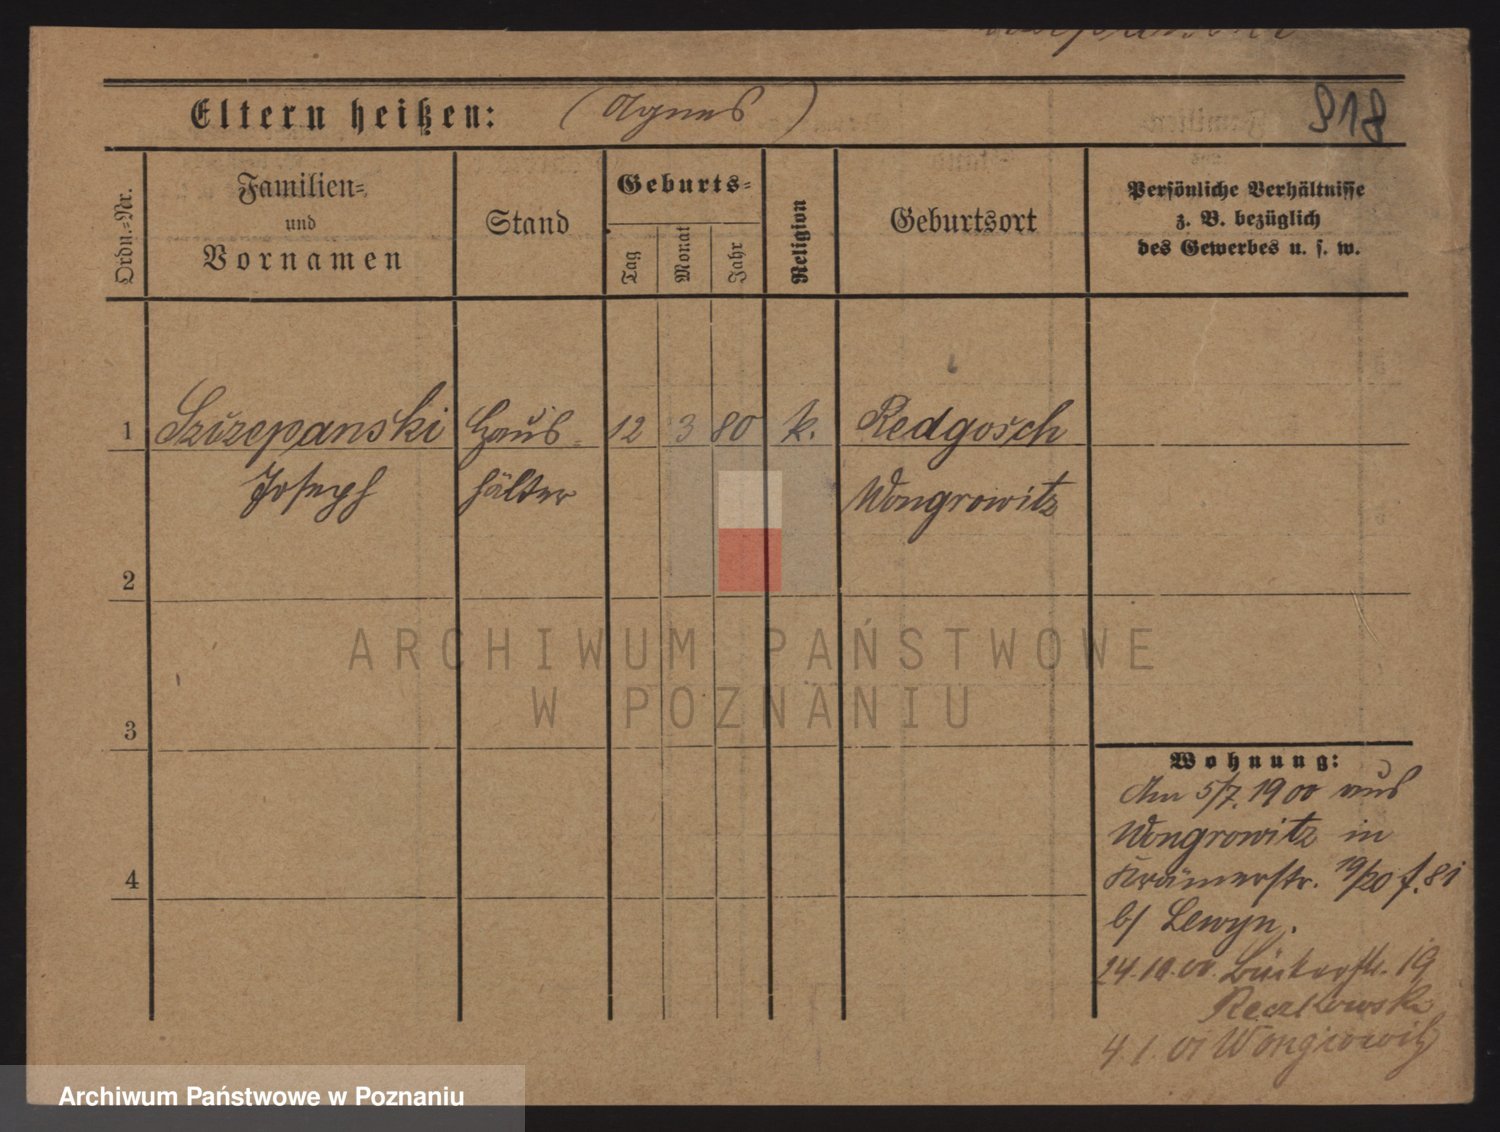 Eltern heißen: (Agnes)
818
Ordn.-Nr.
Familien-
und
Vornamen
Stand
Geburts-
Tag
Monat
Jahr
Religion
Geburtsort
Persönliche Verhältnisse
z. B. bezüglich
des Gewerbes u. s. w.
1 Szczepanski Haus- 12 3 80 k. Redgosch
Joseph hälter Wongrowitz
2
ARCHIWUM PAŃSTWOWE
W POZNANIU
3
Wohnung:
Am 5/7. 1900 aus
Wongrowitz in
Krämerstr. 19/20 f. 81
b/ Lewyn.
24.10.00. 19
4
4.1.01 Wongrowitz
Archiwum Państwowe w Poznaniu